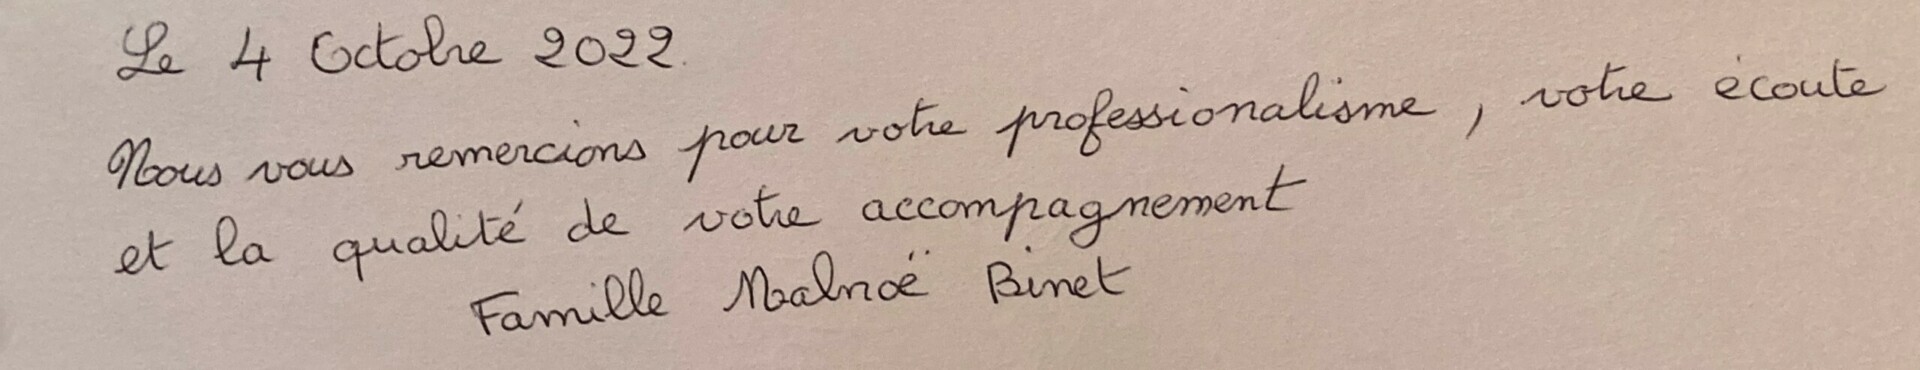 Le 4 Octobre 2022.
Nous vous remercions pour votre professionalisme, votre écoute
et la qualité de votre accompagnement
Famille Malnoë Binet